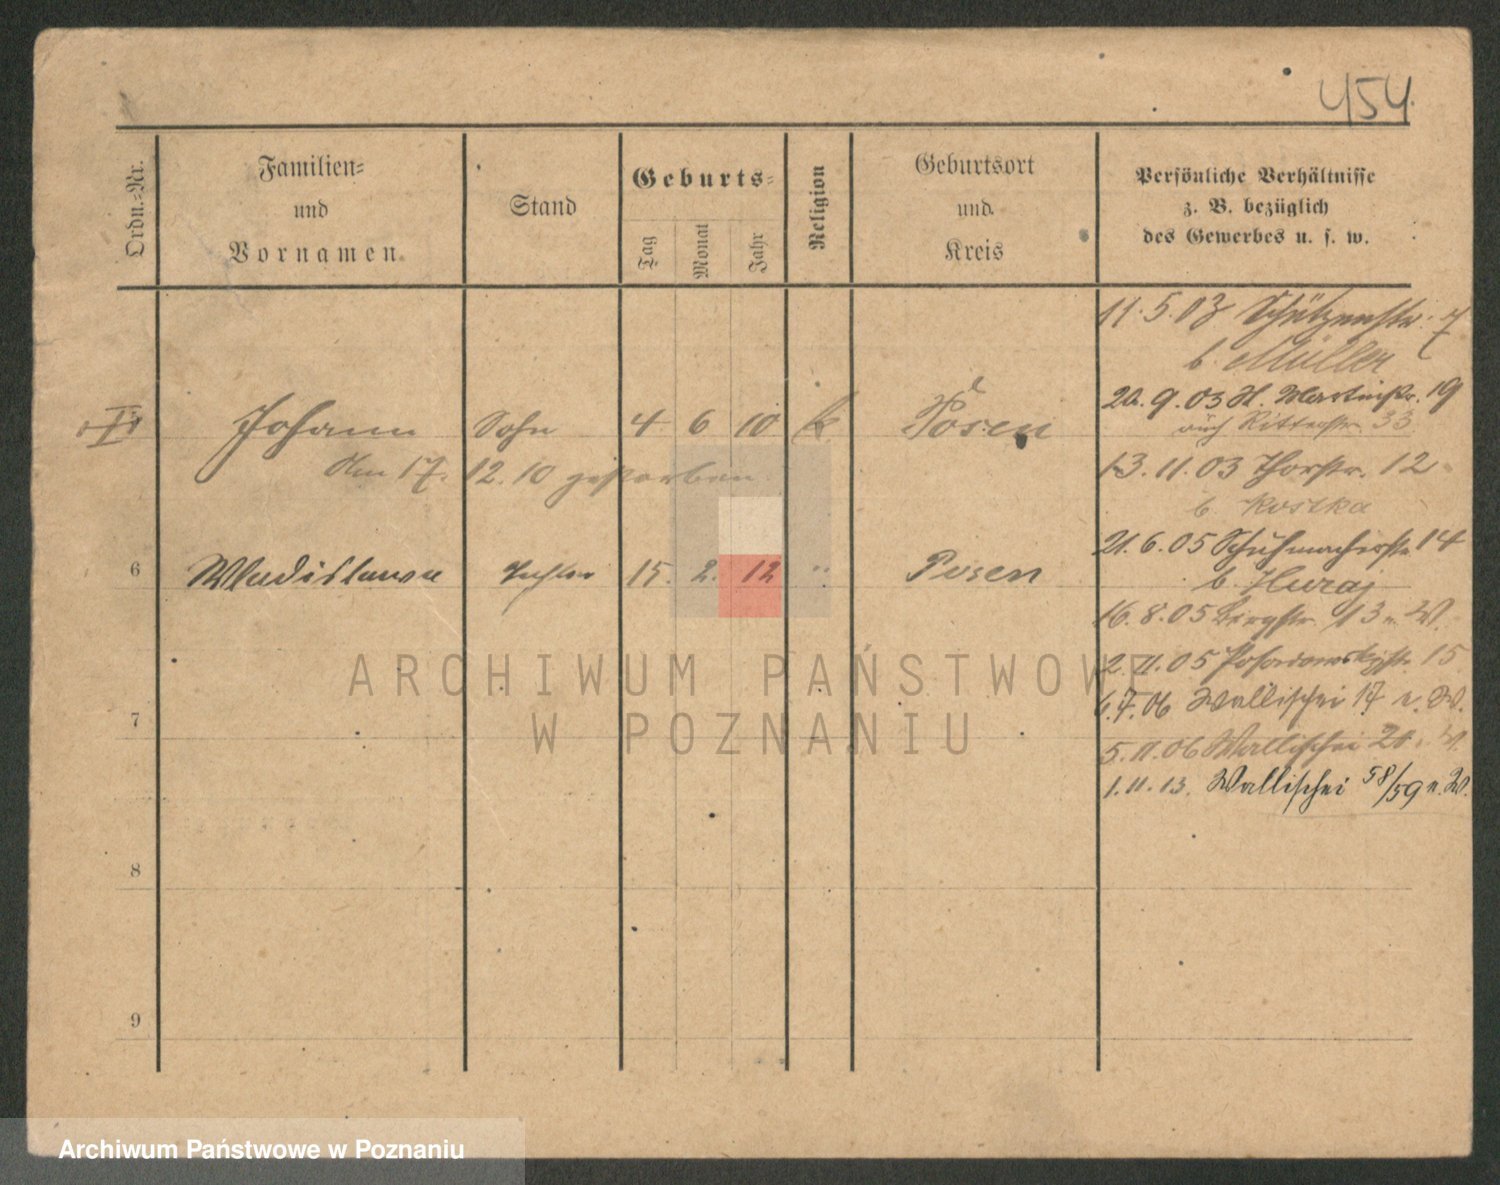 454
Ordn.-Nr.
Familien-
und
Vornamen.
Stand
Geburts-
Tag
Monat
Jahr
Religion
Geburtsort
und
Kreis
Persönliche Verhältnisse
z. B. bezüglich
des Gewerbes u. s. w.
11.5.03 Schützenstr. 7
b. Müller
Johann Sohn 4 6 10 k Posen
20.9.03 St. Martinstr. 19
auch Ritterstr. 33
Am 17. 12. 10 gestorben
13.11.03 Thorstr. 12
b. Kostka
21.6.05 Schuhmacherstr. 14
6 Wladislawa Tochter 15. 2. 12 " Posen
b. Huraj
16.8.05 Bergstr. 13 e. W.
2.11.05 15
6.7.06 Wallischei 17 e. W.
7
5.11.06 Wallischei e. W.
1.11.13. Wallischei 58/59 e. W.
8
9
ARCHIWUM PAŃSTWOWE
W POZNANIU
Archiwum Państwowe w Poznaniu